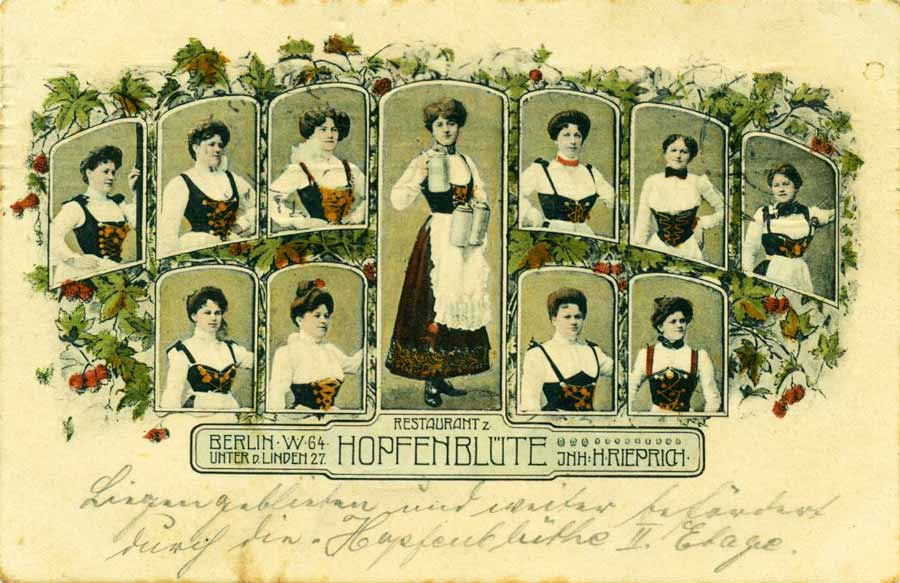 RESTAURANT Z.
BERLIN·W·64·
UNTER D. LINDEN 27.
HOPFENBLÜTE
JNH: H·RIEPRICH·
Liegengeblieben und weiter befördert
durch die Hopfenblüthe II. Etage.